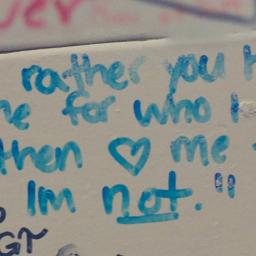 ver
rather you h
me for who I
then ♡ me
Im not."
GT